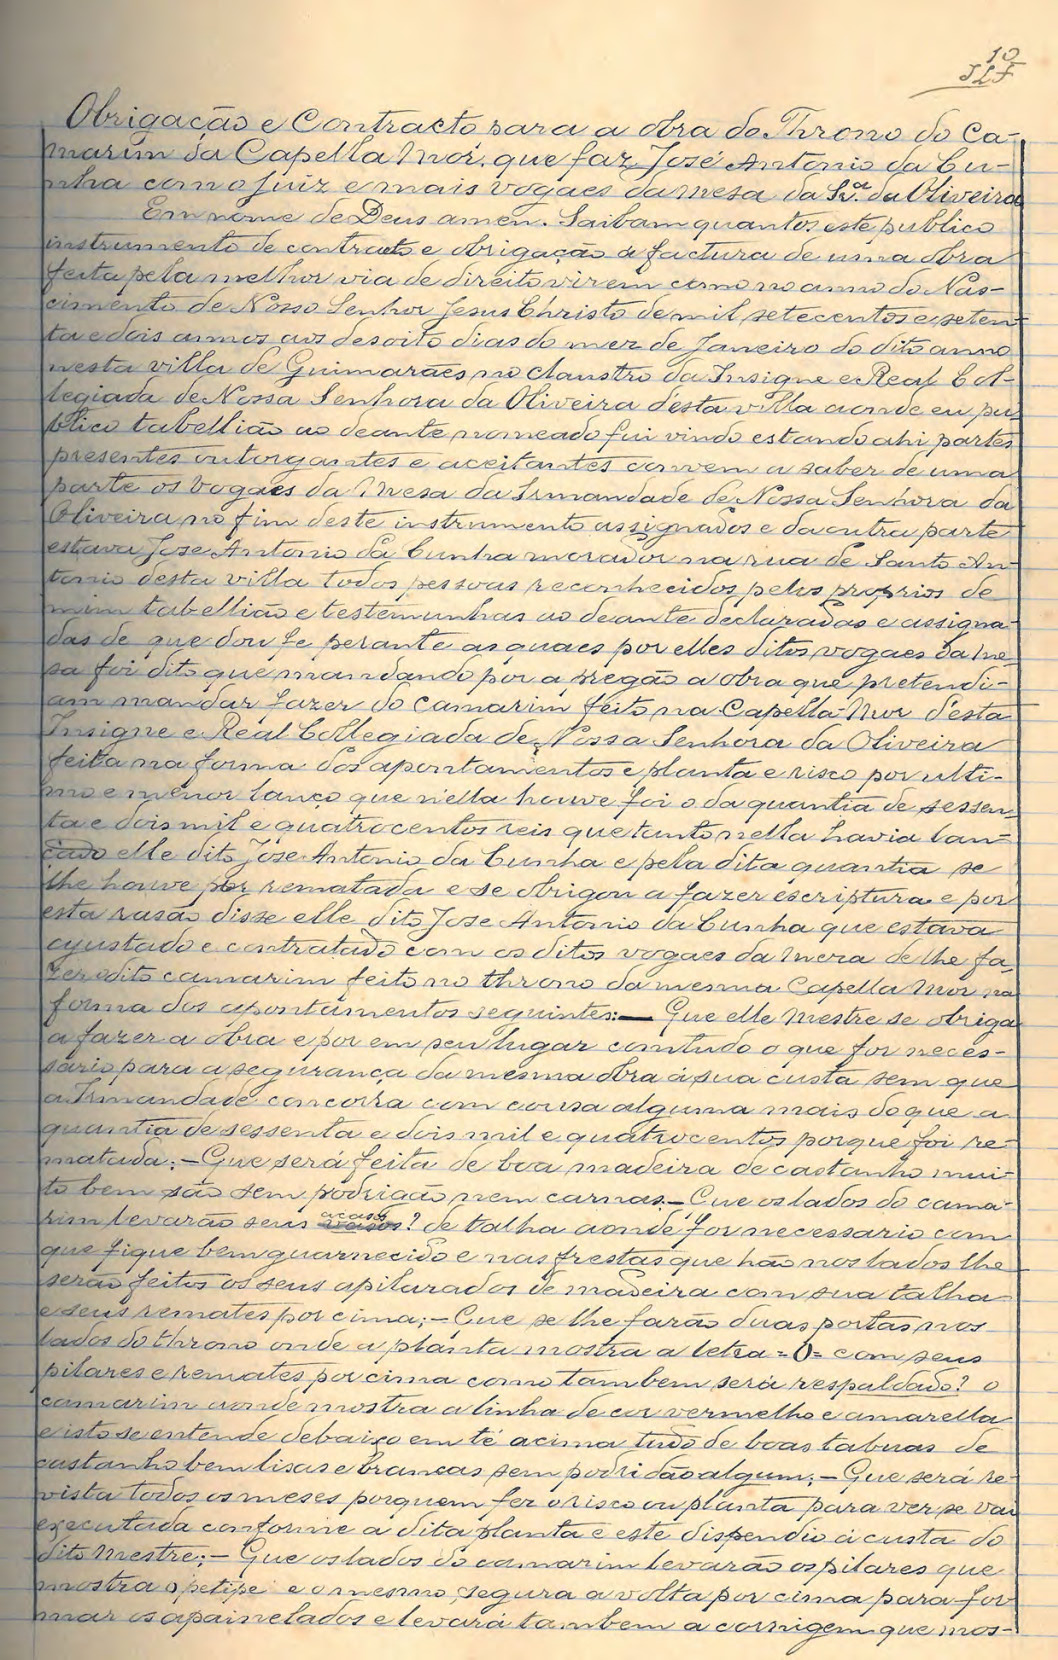 10
JLF
Obrigação e Contracto para a obra do Throno do Ca-
marim da Capella Mór, que faz José Antonio da Cu-
nha com o Juiz e mais vogaes da mesa da Sr.ª da Oliveira
Em nome de Deus amen. Saibam quantos este publico
instrumento de contracto e obrigação a factura de uma obra
feita pela melhor via de direito virem como no anno do Nas-
cimento de Nosso Senhor Jesus Christo de mil setecentos e seten-
ta e dois annos aos desoito dias do mez de Janeiro do dito anno
nesta villa de Guimarães no claustro da Insigne e Real Col-
legiada de Nossa Senhora da Oliveira d'esta villa aonde eu pu
blico tabellião ao deante nomeado fui vindo estando ahi partes
presentes outorgantes e aceitantes convem a saber de uma
parte os Vogaes da Mesa da Irmandade de Nossa Senhora da
Oliveira no fim deste instrumento assignados e da outra parte
estava Jose Antonio da Cunha morador na rua de Santo An-
tonio desta villa todos pessoas reconhecidos pelos proprios de
mim tabellião e testemunhas ao deante declaradas e assigna-
das de que dou fe perante as quaes por elles ditos vogaes da Me-
sa foi dito que mandando por a pregão a obra que pretendi-
am mandar fazer do camarim feito na Capella Mor d'esta
Insigne e Real Collegiada de Nossa Senhora da Oliveira
feita na forma dos apontamentos e planta e risco por ulti-
mo e menor lanço que n'ella houve foi o da quantia de sessen-
ta e dois mil e quatrocentos reis que tanto nella havia lan-
çado elle dito José Antonio da Cunha e pela dita quantia se
lhe houve por rematada e se obrigou a fazer escriptura e por
esta rasão disse elle dito Jose Antonio da Cunha que estava
ajustado e contratado com os ditos vogaes da meza de lhe fa-
zer o dito camarim feito no throno da mesma Capella Mor na
forma dos apontamentos seguintes:— Que elle Mestre se obriga
a fazer a obra e por em seu lugar com tudo o que for neces-
sario para a segurança da mesma obra á sua custa sem que
a Irmandade concorra com cousa alguma mais do que a
quantia de sessenta e dois mil e quatrocentos porque foi re-
matada;— Que será feita de boa madeira de castanho mui-
to bem são sem podrição nem carnas.— Que os lados do cama-
rim levarão seus acasos? de talha aonde for necessario com
que fique bem guarnecido e nas frestas que hão nos lados lhe
serão feitos os seus apilarados de madeira com sua talha
e seus remates por cima;— Que se lhe farão duas portas nos
lados do throno onde a planta mostra a letra =O= com seus
pilares e remates por cima como tambem será respaldado? o
camarim aonde mostra a linha de cor vermelho e amarella
e isto se entende debaixo em té acima tudo de boas taboas de
castanho bem lisas e brancas sem podridão algum;— Que será re-
vista todos os meses por quem fez o risco ou planta para ver se vai
executada conforme a dita planta e este dispendio á custa do
dito Mestre;— Que os lados do camarim levarão os pilares que
mostra o petipe e o mesmo segura a volta por cima para for
mar os apainelados e levará tambem a cornigem que mos-